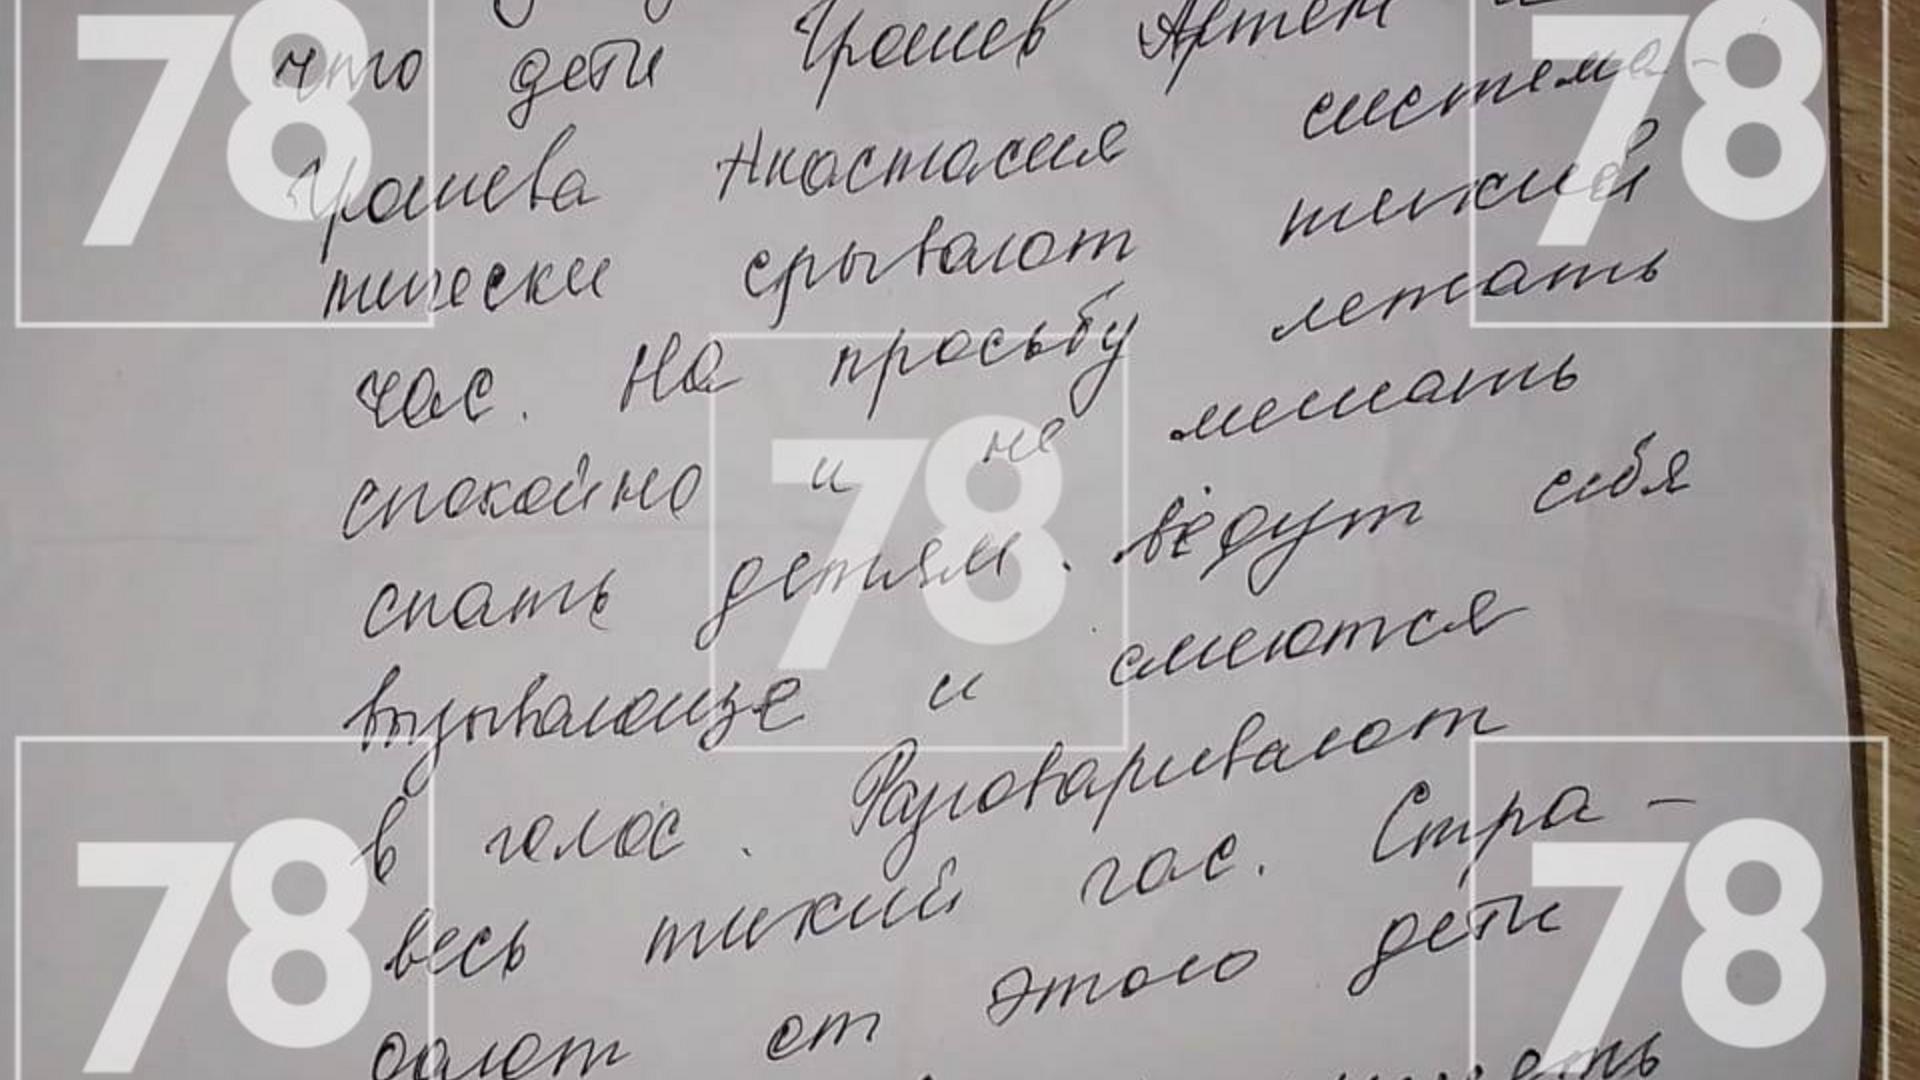 что дети Грошев Артем и
Грошева Анастасия система-
тически срывают тихий
час. На просьбу лежать
спокойно и не мешать
спать детям. ведут себя
вызывающе и смеются
в голос. Разговаривают
весь тихий час. Стра-
дают от этого дети
78
78
78
78
78